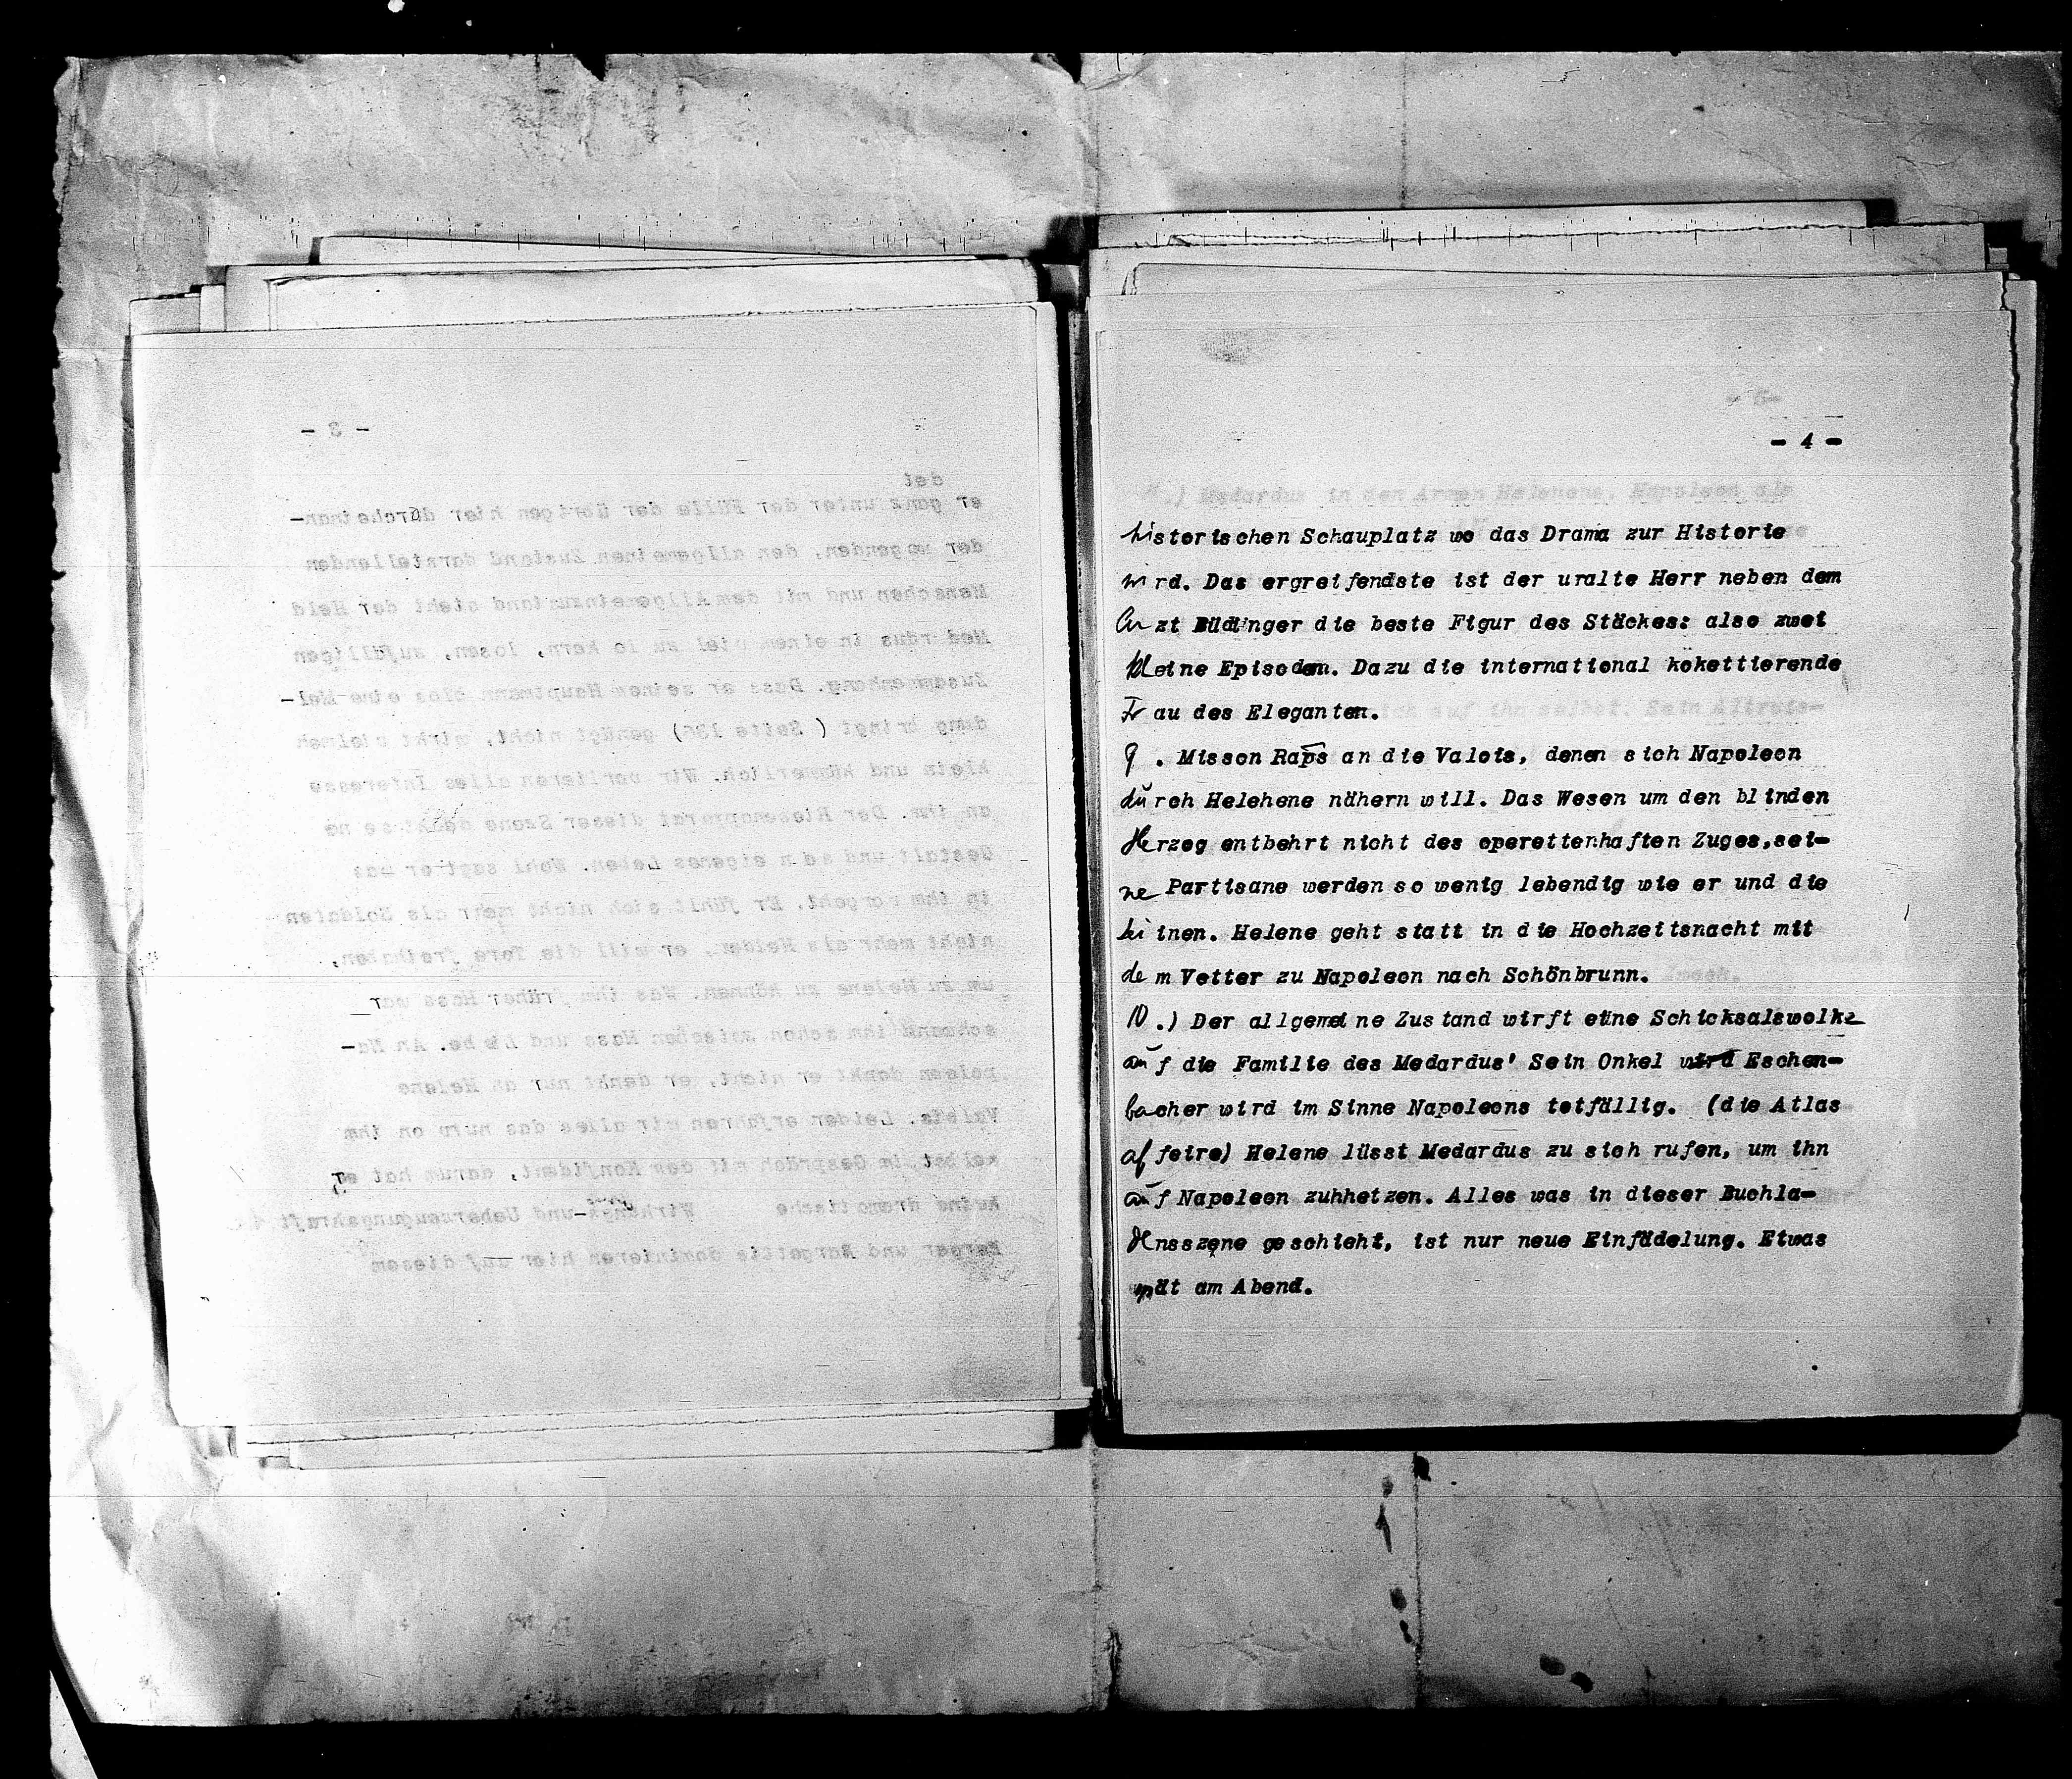 - 3 -
det
er ganz unter der Fülle der übrigen hier durcheinan-
der wogenden, den allgemeinen Zustand darstellenden
Menschen und mit dem Allgemeinzustand steht der Held
Medardus in einem viel zu lockern, losen, zufälligen
Zusammenhang. Dass er seinem Hauptmann eine Mel-
dung bringt ( Seite 136) genügt nicht, wirkt vielmeh
klein und kümmerlich. Wir verlieren alles Interesse
an ihm. Der Riesenapparat dieser Szene
Gestalt und sein eigenes Leben. Wohl sagt er was
in ihm vorgeht. Er fühlt sich nicht mehr als Soldaten
nicht mehr als Helden, er will die Tore freihaben,
um zu Helene zu können. Was ihm früher Hass war
schwankt ihm schon zwischen Hass und Liebe. An Na-
poleon denkt er nicht, er denkt nur an Helene
Valois. Leider erfahren wir alles das nur von ihm
selbst im Gespräch mit dem Konfident, darum hat es
keine dramatische Wirkungs-und Ueberzeugungskraft
Berger und Margartte dominieren hier auf diesem
- 4 -
historischen Schauplatz wo das Drama zur Historie
wird. Das ergreifendste ist der uralte Herr neben dem
Arzt Büdinger die beste Figur des Stäckes: also zwei
kleine Episoden. Dazu die international kokettierende
Frau des Eleganten.
9 . Misson Raps an die Valois, denen sich Napoleon
durch Helehene nähern will. Das Wesen um den blinden
Herzog entbehrt nicht des operettenhaften Zuges,sei-
ne Partisane werden so wenig lebendig wie er und die
inen. Helene geht statt in die Hochzeitsnacht mit
dem Vetter zu Napoleon nach Schönbrunn.
10.) Der allgemeine Zustand wirft eine Schicksalswolke
auf die Familie des Medardus' Sein Onkel wird Eschen-
bacher wird im Sinne Napoleons totfällig. (die Atlas
affeire) Helene lüsst Medardus zu sich rufen, um ihn
auf Napoleon zuhhetzen. Alles was in dieser Buchla-
denszene geschieht, ist nur neue Einfädelung. Etwas
spät am Abend.